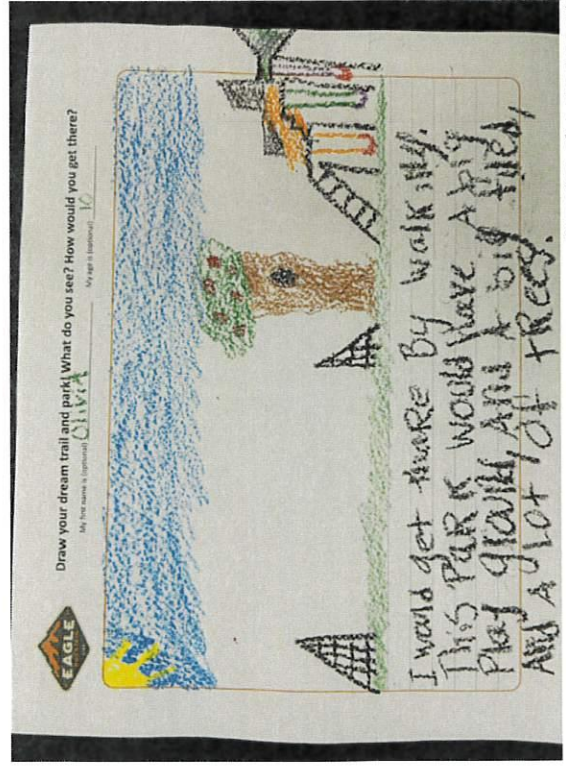 EAGLE
Draw your dream trail and park! What do you see? How would you get there?
My first name is (optional) OliviA My age is (optional) 10
I would get thare By walking.
This PARK would have A big
Play ground, And A big filed,
And A lot of trees.